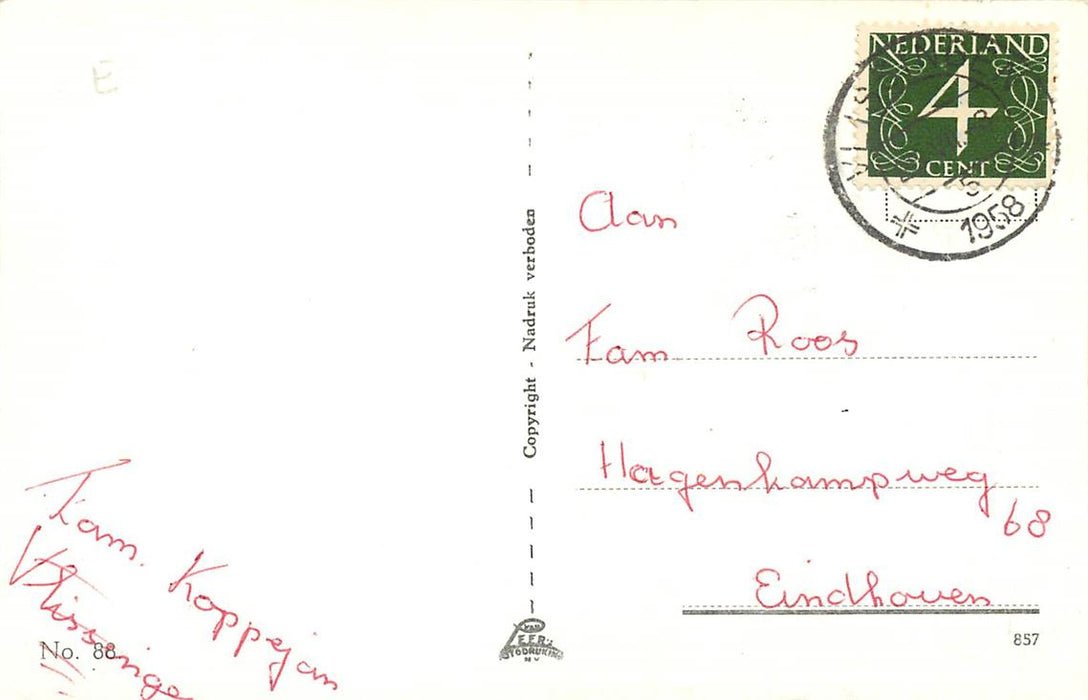 E
NEDERLAND
4
CENT
1958
Aan
Fam Roos
Hagenkampweg
68
Eindhoven
857
Copyright - Nadruk verboden
VAN
LEER'S
FOTODRUKIND.
N.V.
Fam. Koppejan
Vlissinge
No. 88